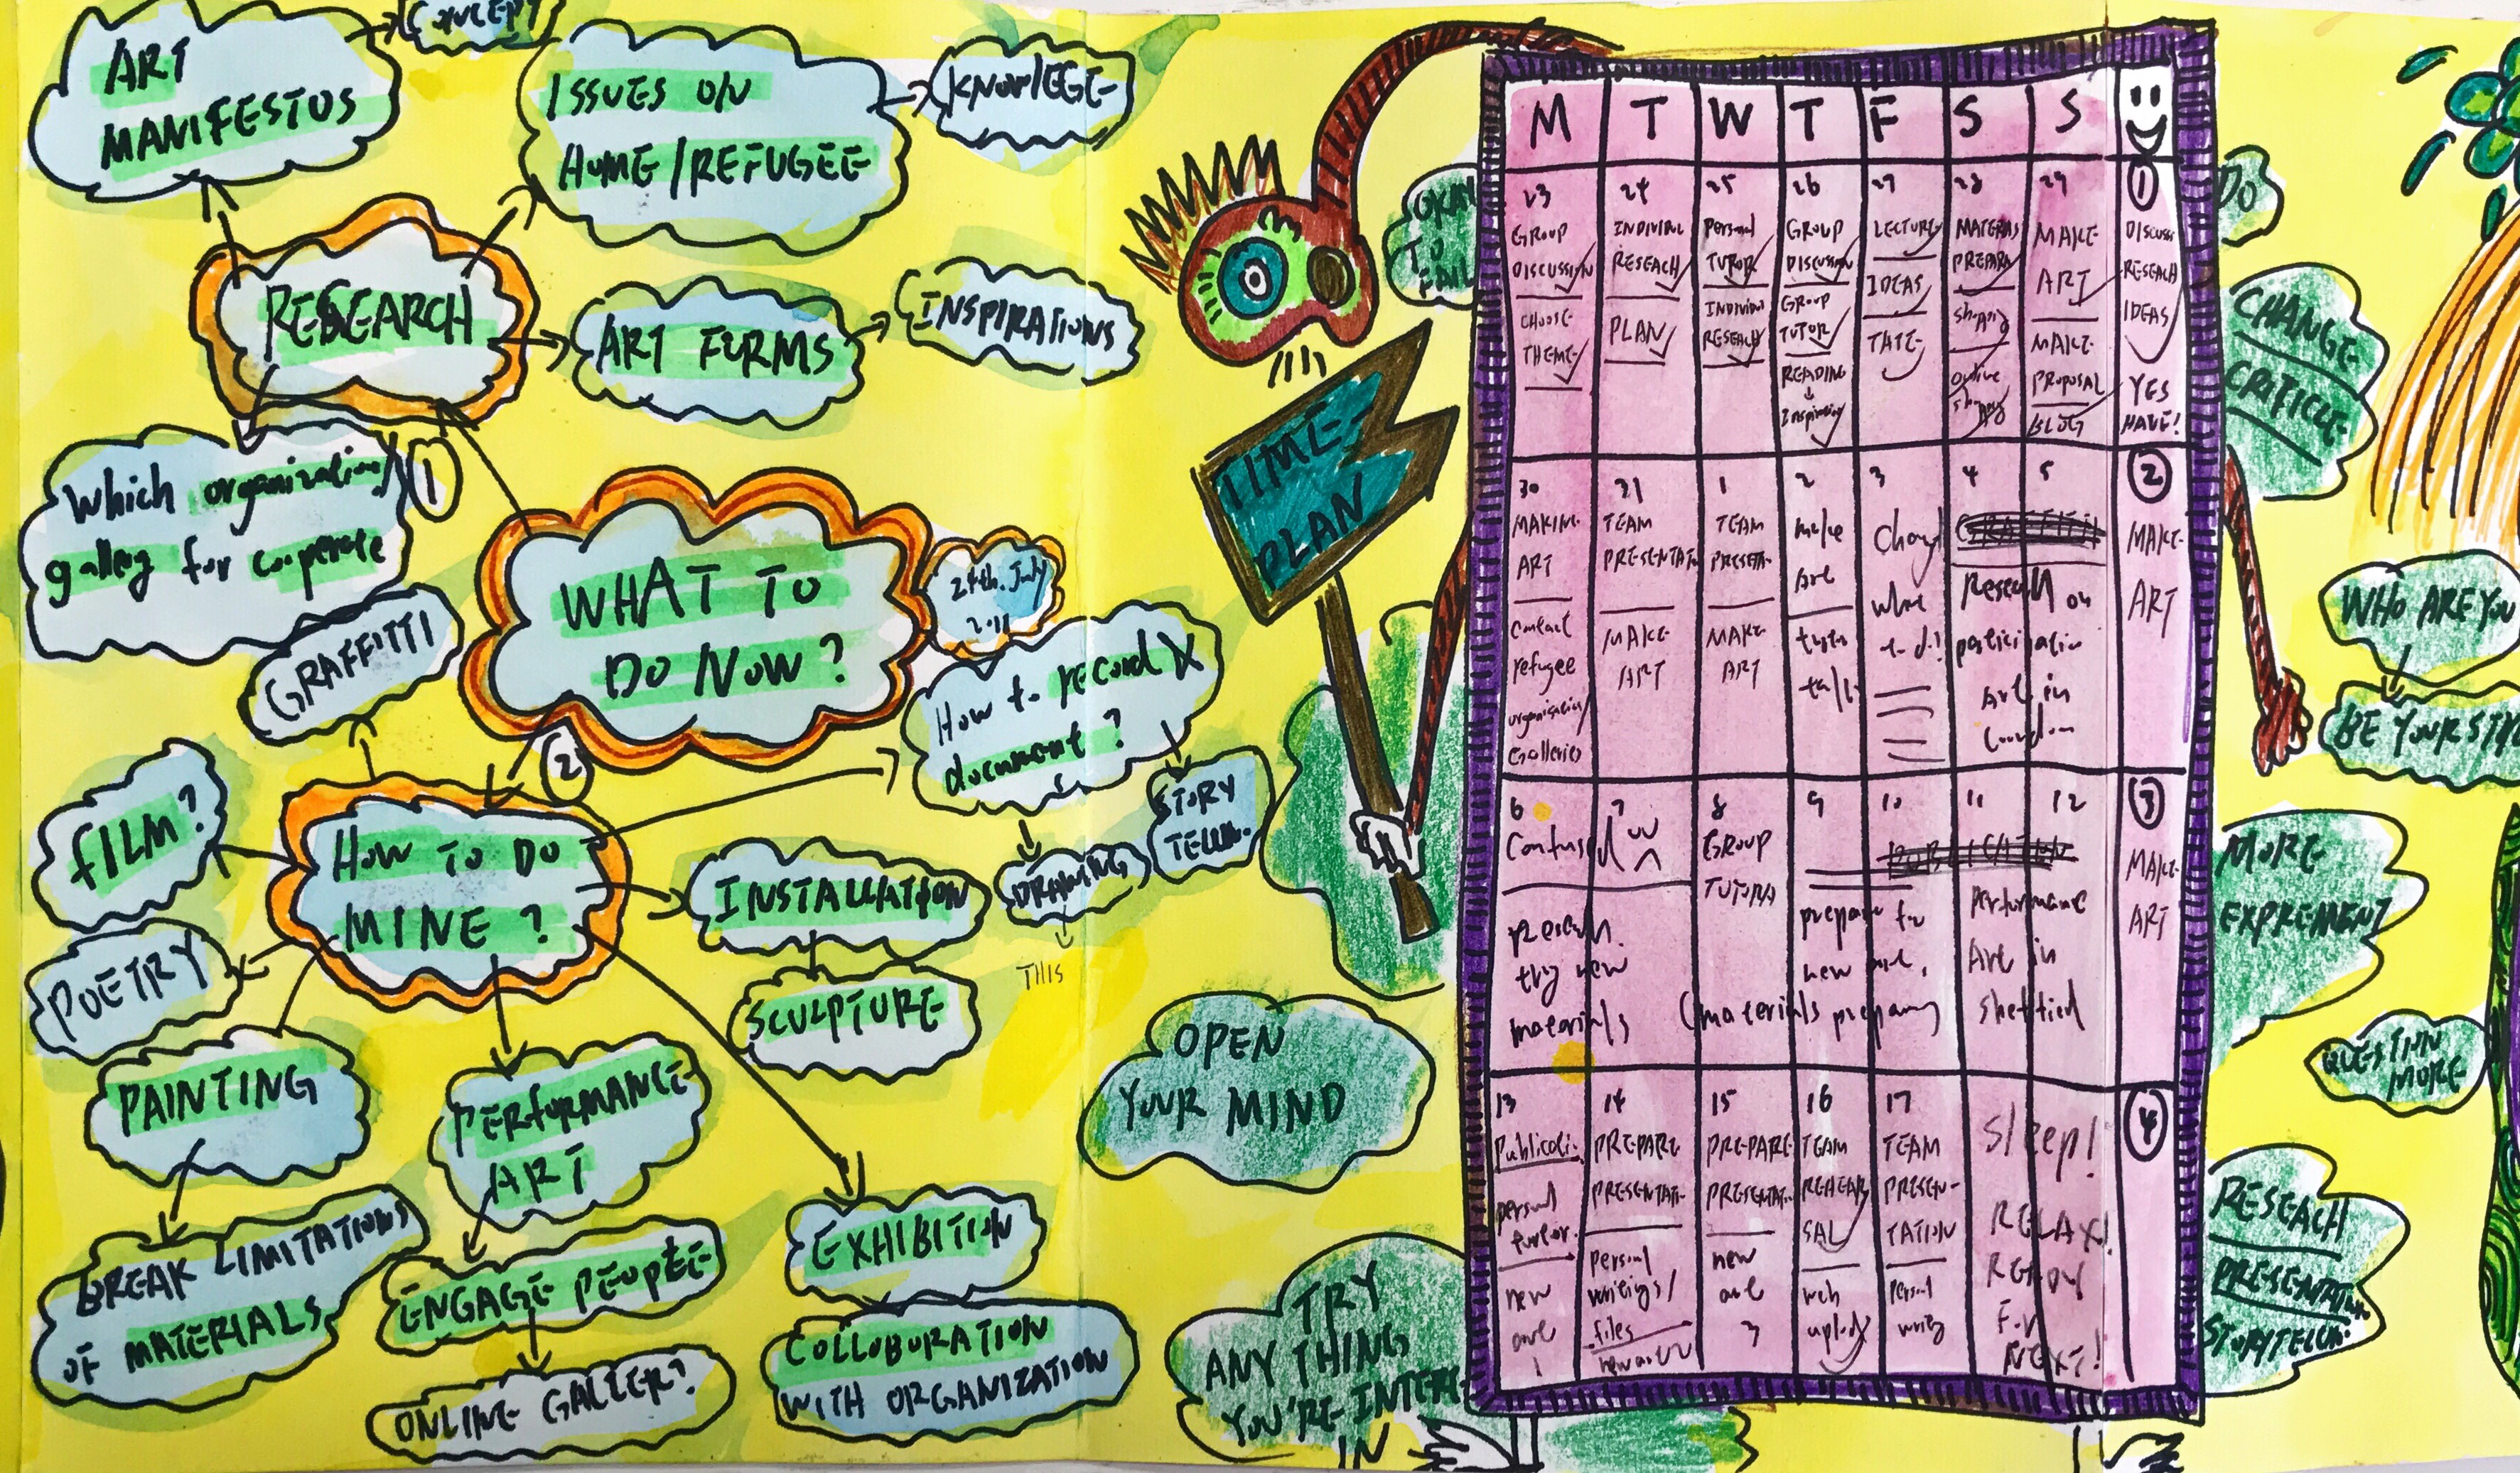 ART
MANIFESTOS
CONCEPT
ISSUES ON
HOME/REFUGEE
KNOWLEGE
RESEARCH
ART FORMS
INSPIRATIONS
Which organization/
gallery for cooperate
1
WHAT TO
DO NOW?
24th. July
2
HOW TO DO
MINE?
GRAFFITTI
FILM?
POETRY
PAINTING
BREAK LIMITATIONS
OF MATERIALS
PERFORMANCE
ART
ENGAGE PEOPLE
ONLINE GALLER?
EXHIBITION
COLLOBORATION
WITH ORGANIZATION
INSTALLATION
SCULPTURE
How to record X
document?
DRAWING
THIS
STORY
TELLIN.
OPEN
YOUR MIND
TRY
ANY THING
YOU'RE INTERE
IN
TIME
PLAN
TO
FAIL
M T W T F S S
23
GROUP
DISCUSSION
CHOOSE
THEME
24
INDIVIUAL
RESEACH
PLAN
25
Personal
TUTOR
INDIVIUAL
RESEACH
26
GROUP
DISCUSSION
GROUP
TUTOR
READING
Inspiration
27
LECTURE
IDEAS
TATE
28
MATERIAS
PREPARA
shopping
online
shopping
29
MAKE
ART
MAKE
PROPOSAL
BLOG
1
DISCUSS
RESEACH
IDEAS
YES
HAVE!
30
MAKING
ART
contact
refugee
organisation/
Galleries
31
TEAM
PRESENTATN
MAKE
ART
1
TEAM
PRESETA
MAKE
ART
2
make
Art
tutor
talk
3
what
to do!
4 5
Reseach on
participatin
Art in
London
2
MAKE
ART
6 7
Confused
reseach.
try new
materials
8
GROUP
TUTORIA
9 10
prepare for
new art.
(materials preparing
11 12
Performance
Art in
sheffied
3
MAKE
ART
13
Publicati.
personal
turtor.
new
art
14
PREPARE
PRESENTATI
personal
writings/
files
new art
15
PREPARE
PRESENTATI
new
art
16
TEAM
REHEAR
SAL
web
upload
17
TEAM
PRESEN-
TATION
personal
writing
Sleep!
RELAX!
READY
FOR
NEXT!
4
DO
CHANGE
CRITICLE
WHO ARE YOU
BE YOURSEL
MORE
EXPREMENT
QUESTION
MORE
RESEACH
PRESENTATION
STORYTELLIN.